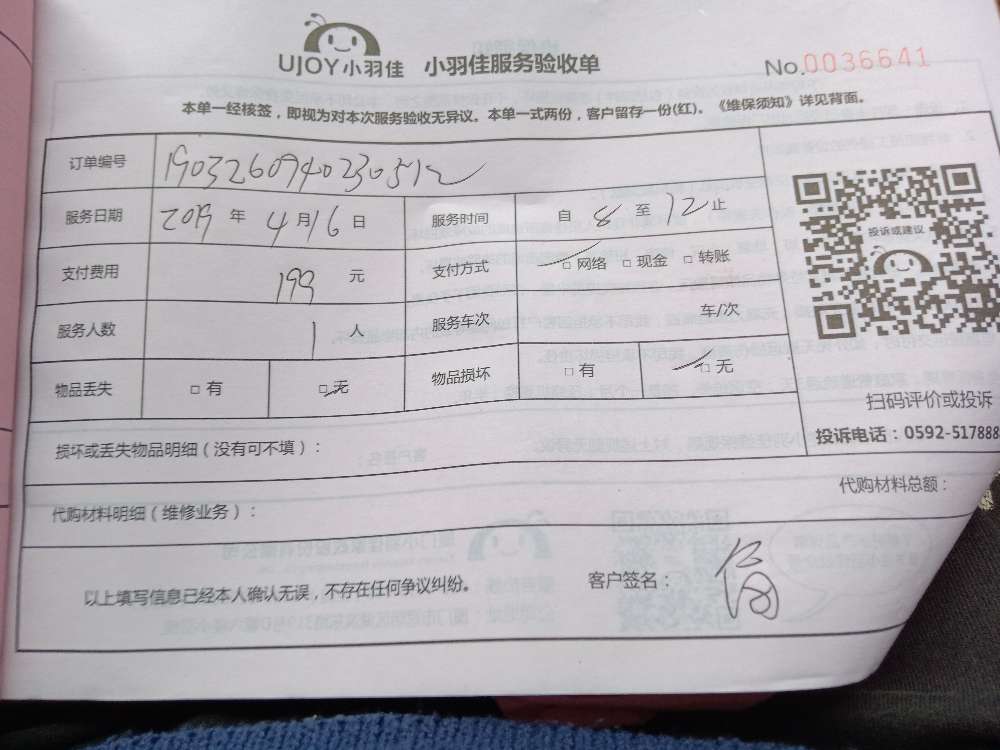 UJOY小羽佳 小羽佳服务验收单 No.0036641
本单一经核签，即视为对本次服务验收无异议。本单一式两份，客户留存一份(红)。《维保须知》详见背面。
订单编号 1903260940230512
服务日期 2019 年 4 月 16 日 服务时间 自 8 至 12 止
投诉或建议
支付费用 199 元 支付方式 □ 网络 □ 现金 □ 转账
服务人数 1 人 服务车次 车/次
物品丢失 □ 有 □ 无 物品损坏 □ 有 □ 无
扫码评价或投诉
投诉电话：0592-517888
损坏或丢失物品明细（没有可不填）：
代购材料明细（维修业务）： 代购材料总额：
以上填写信息已经本人确认无误，不存在任何争议纠纷。 客户签名：